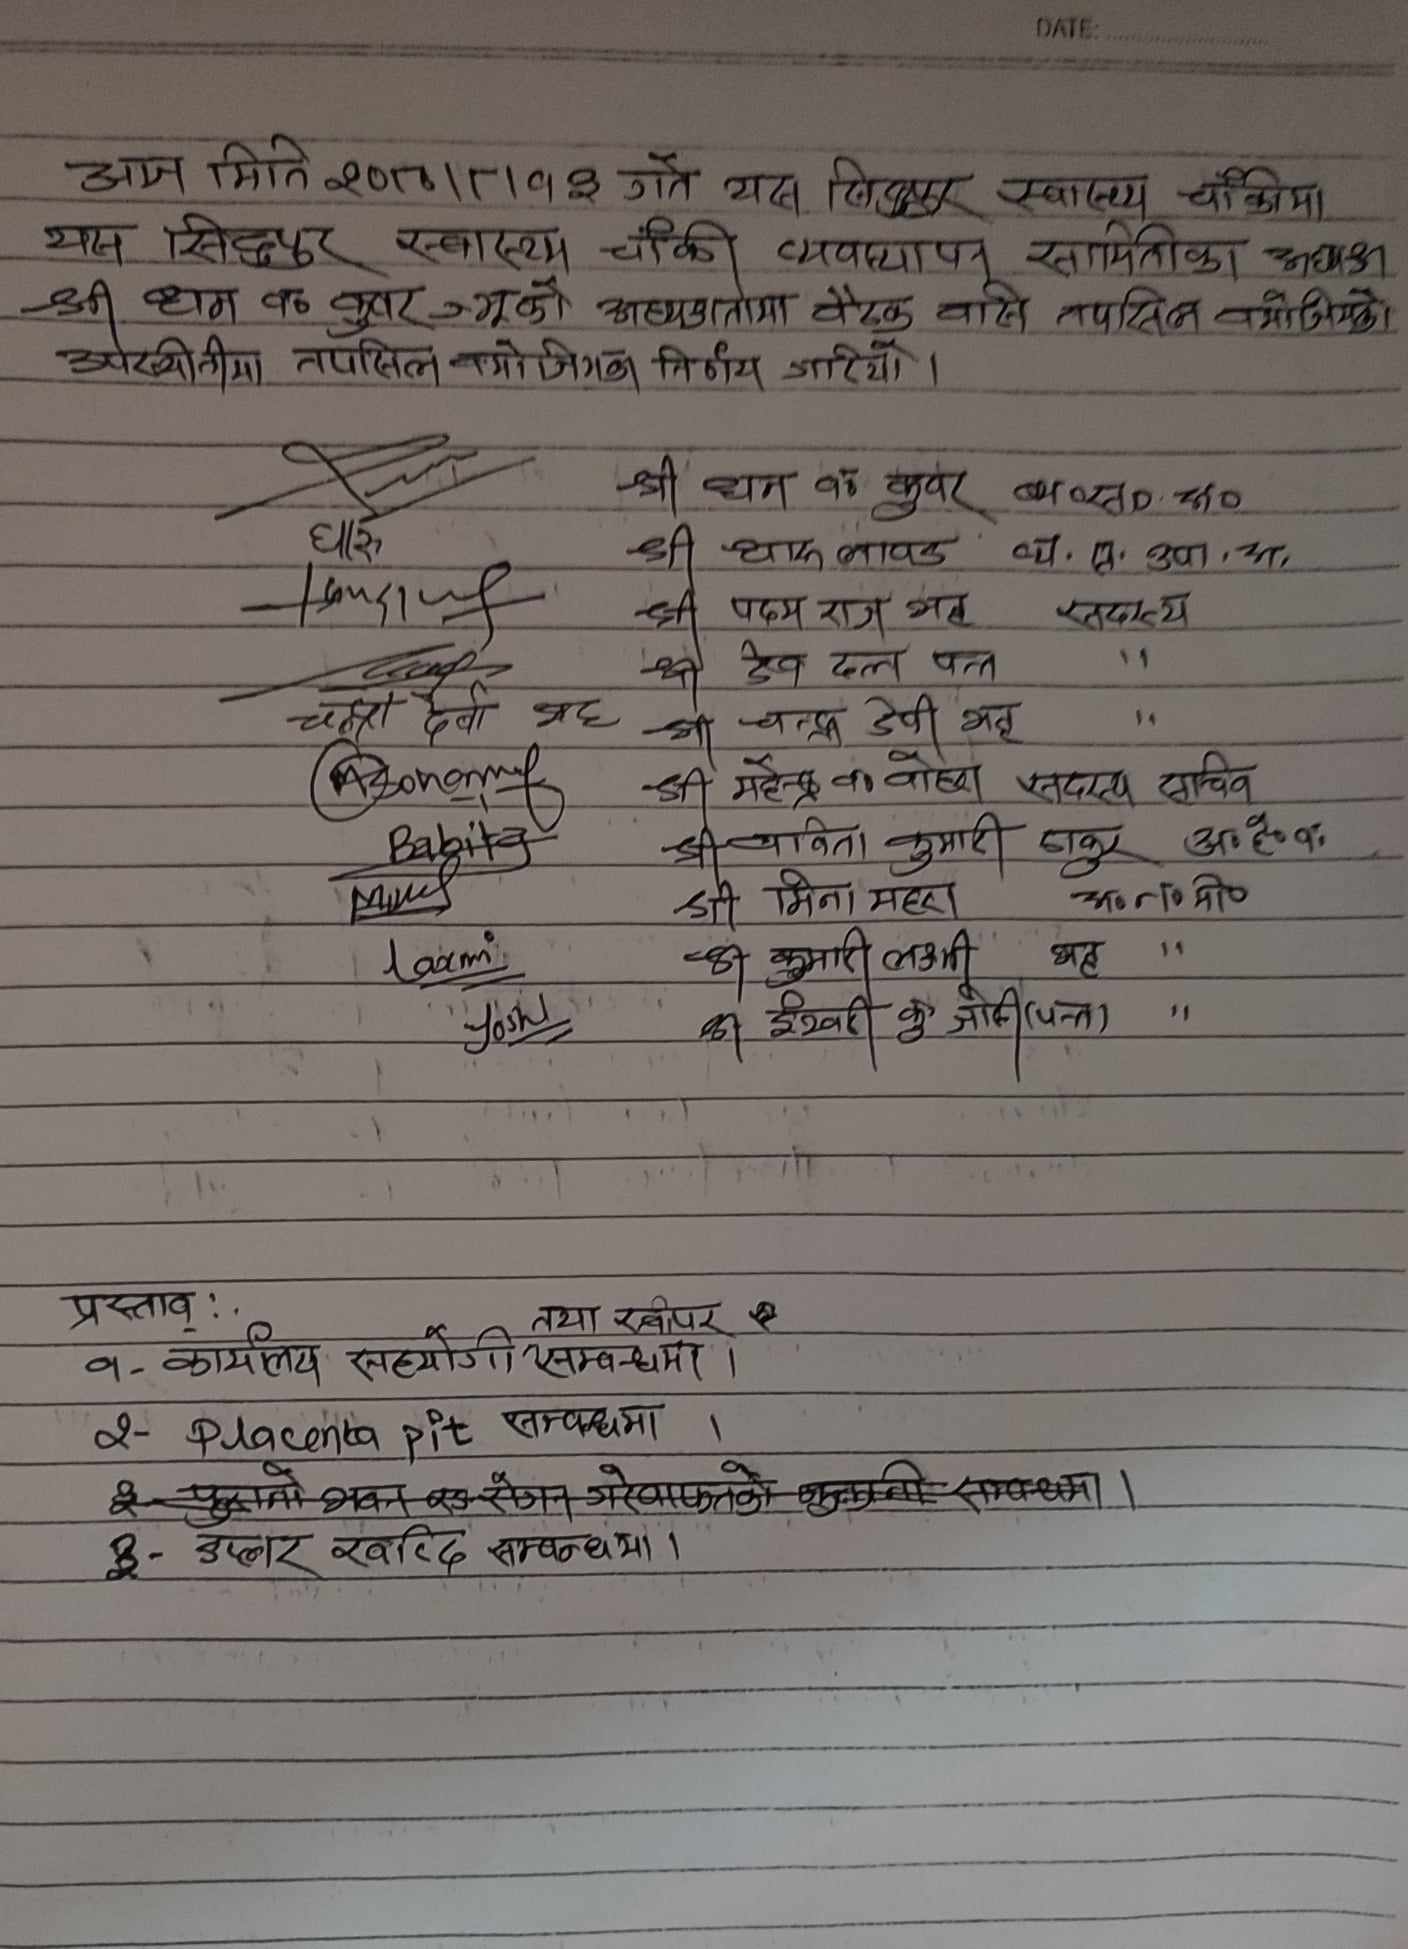 DATE: ....................
आज मिति २०८०।८।१३ गते यस सिद्धपुर स्वास्थ्य चौकीमा
यस सिद्धपुर स्वास्थ्य चौकी व्यवस्थापन समितीका अध्यक्ष
श्री धन व० कुवर ज्यूको अध्यक्षतामा बैठक वसि तपसिल बमोजिमको
उपस्थीतीमा तपसिल बमोजिमका निर्णय गरियो ।
श्री धन व० कुवर व्य०स०अ०
धारु श्री धारु लावड व्य. स. उपा. अ.
श्री पदम राज भट्ट सदस्य
श्री देव दत्त पन्त "
चन्द्रा देवी भट्ट श्री चन्द्रा देवी भट्ट "
श्री महेन्द्र व० वोहरा सदस्य सचिव
Babita श्री बाविता कुमारी ठाकुर अ०हे०व०
श्री मिना महरा अ०न०मी०
Laxmi श्री कुमारी लक्ष्मी भट्ट "
Joshi श्री ईश्वरी कु जोशी(पन्त) "
प्रस्ताव :.
तथा स्वीपर
१- कार्यालय सहयोगी सम्बन्धमा ।
२- Placenta pit सम्बन्धमा ।
३- पुरानो भवन सम्बन्धमा ।
३- डप्लर खरिद सम्बन्धमा ।